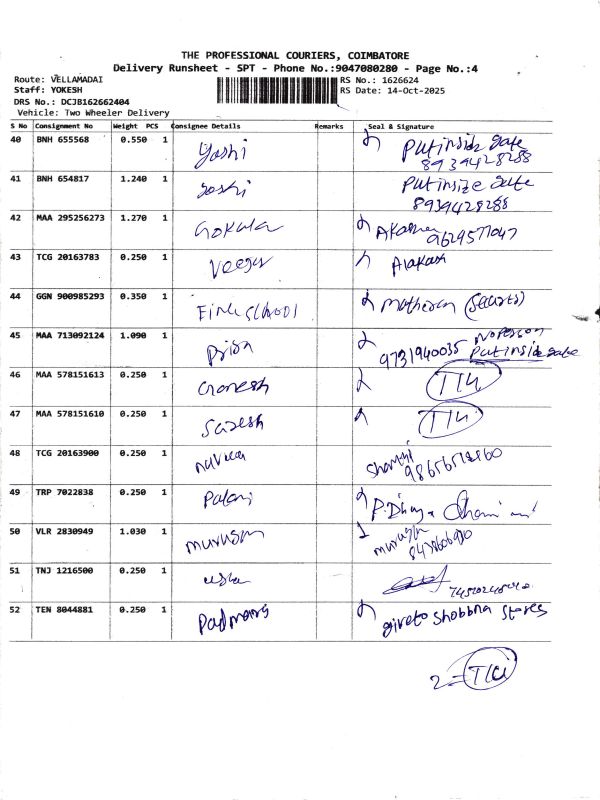 THE PROFESSIONAL COURIERS, COIMBATORE
Delivery Runsheet - SPT - Phone No.:9047080280 - Page No.:4
Route: VELLAMADAI RS No.: 1626624
Staff: YOKESH RS Date: 14-Oct-2025
DRS No.: DCJB162662404
Vehicle: Two Wheeler Delivery
S No Consignment No Weight PCS Consignee Details Remarks Seal & Signature
40 BNH 655568 0.550 1 Yoshi Put inside gate
8939428288
41 BNH 654817 1.240 1 yoshi Putinsize gate
8939428288
42 MAA 295256273 1.270 1 Gokula
43 TCG 20163783 0.250 1 Alakash
44 GGN 900985293 0.350 1
45 MAA 713092124 1.090 1 Priya No Person
9731940035 Put inside gate
46 MAA 578151613 0.250 1 Ganesh
47 MAA 578151610 0.250 1
48 TCG 20163900 0.250 1
49 TRP 7022838 0.250 1 Palani
50 VLR 2830949 1.030 1 murugan
51 TNJ 1216500 0.250 1 usha
52 TEN 8044881 0.250 1 giveto shobbna stores